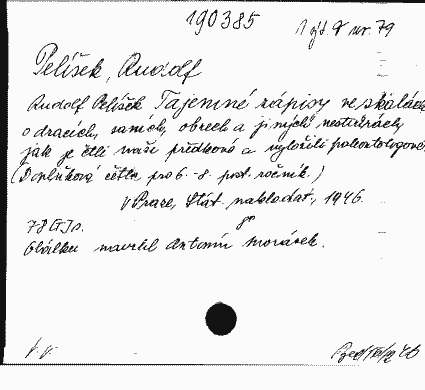 190385
Pelíšek, Rudolf
Rudolf Pelíšek Tajemné zápisy ve skálách
o dracích, saních, obrech a jiných nestvůrách,
jak je četli naši předkové a vyložili paleontologové.
(Doplňková četba pro 6.-8. post. ročník.)
V Praze, Stát. naklad., 1946.
78 [I] s. 8°
Obálku navrhl Antonín Morávek.